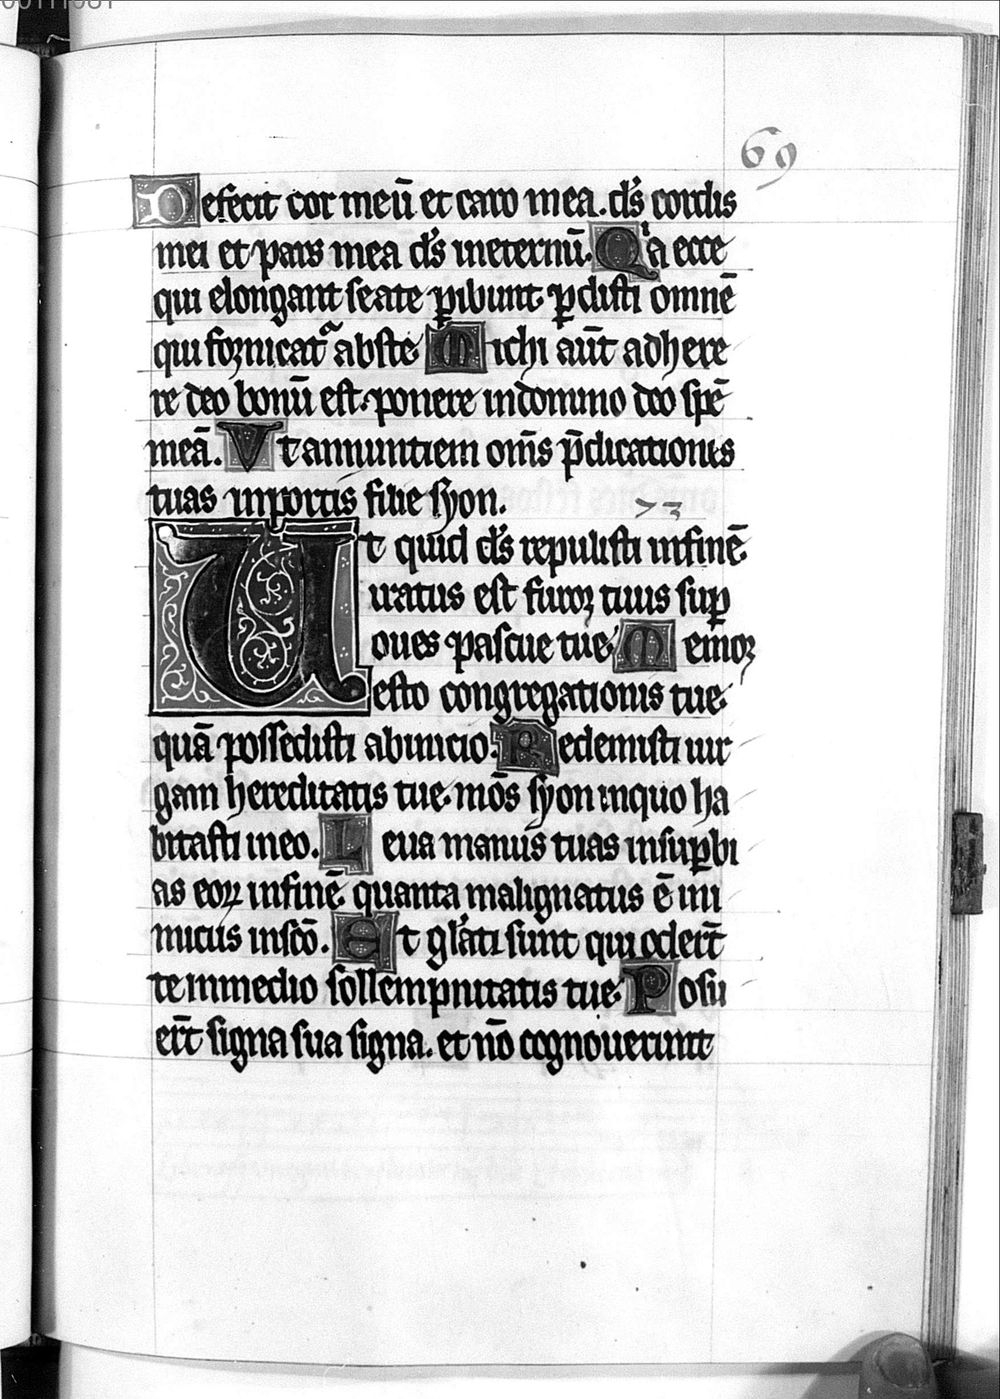 69
Defecit cor meū et caro mea. dr̄s cordis
mei et pars mea ds̄ ineternū. Qͥa ecce
qui elongant seate ꝑibunt. ꝑdisti omnē
qui fornicatᷓ abste. Michi aūt adhere
re deo bonū est. ponere indomino deo spē
meā. Vt annuntiem om̄s p̄dicationes
tuas inportis filie syon.
73
Ut quid ds̄ repulisti infinē
iratus est furor tuus suꝑ
oues pascue tue. Memor
esto congregationis tue.
quā possedisti abinicio. Redemisti uir
gam hereditatis tue. mōs syon inquo ha
bitasti ineo. Leua manus tuas insuꝑbi
as eoꝝ infinē. quanta malignatus ē ini
micus insc̄o. Et gl̄ati sunt qui oder̄t
te inmedio sollempnitatis tue. Posu
er̄t signa sua signa. et nō cognouerunt